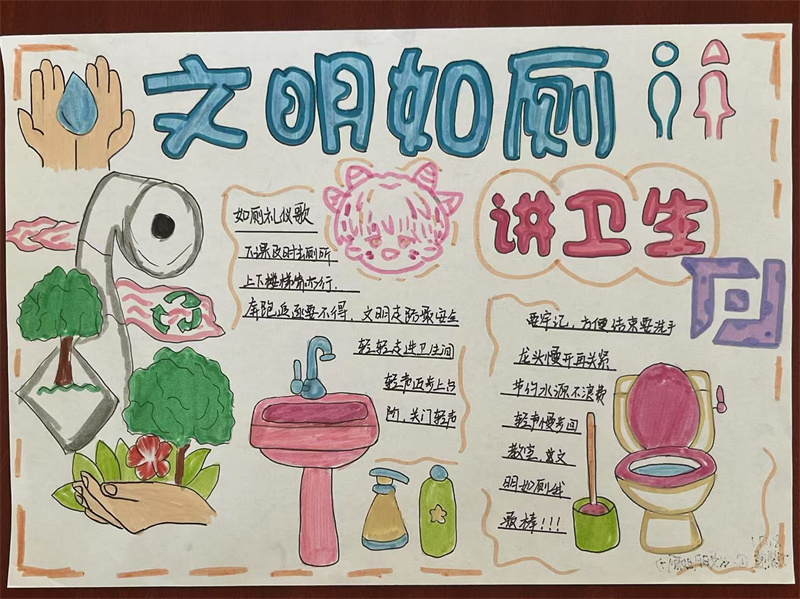 文明如厕
讲卫生
如厕礼仪歌
下课及时去厕所
上下楼梯靠右行.
奔跑追逐要不得, 文明走路最安全
轻轻走进卫生间
轻声迈步上台
阶, 关门轻声
要牢记, 方便结束要洗手
龙头慢开再关紧
节约水源不浪费
轻声慢步回
教室, 文
明如厕我
最棒!!!